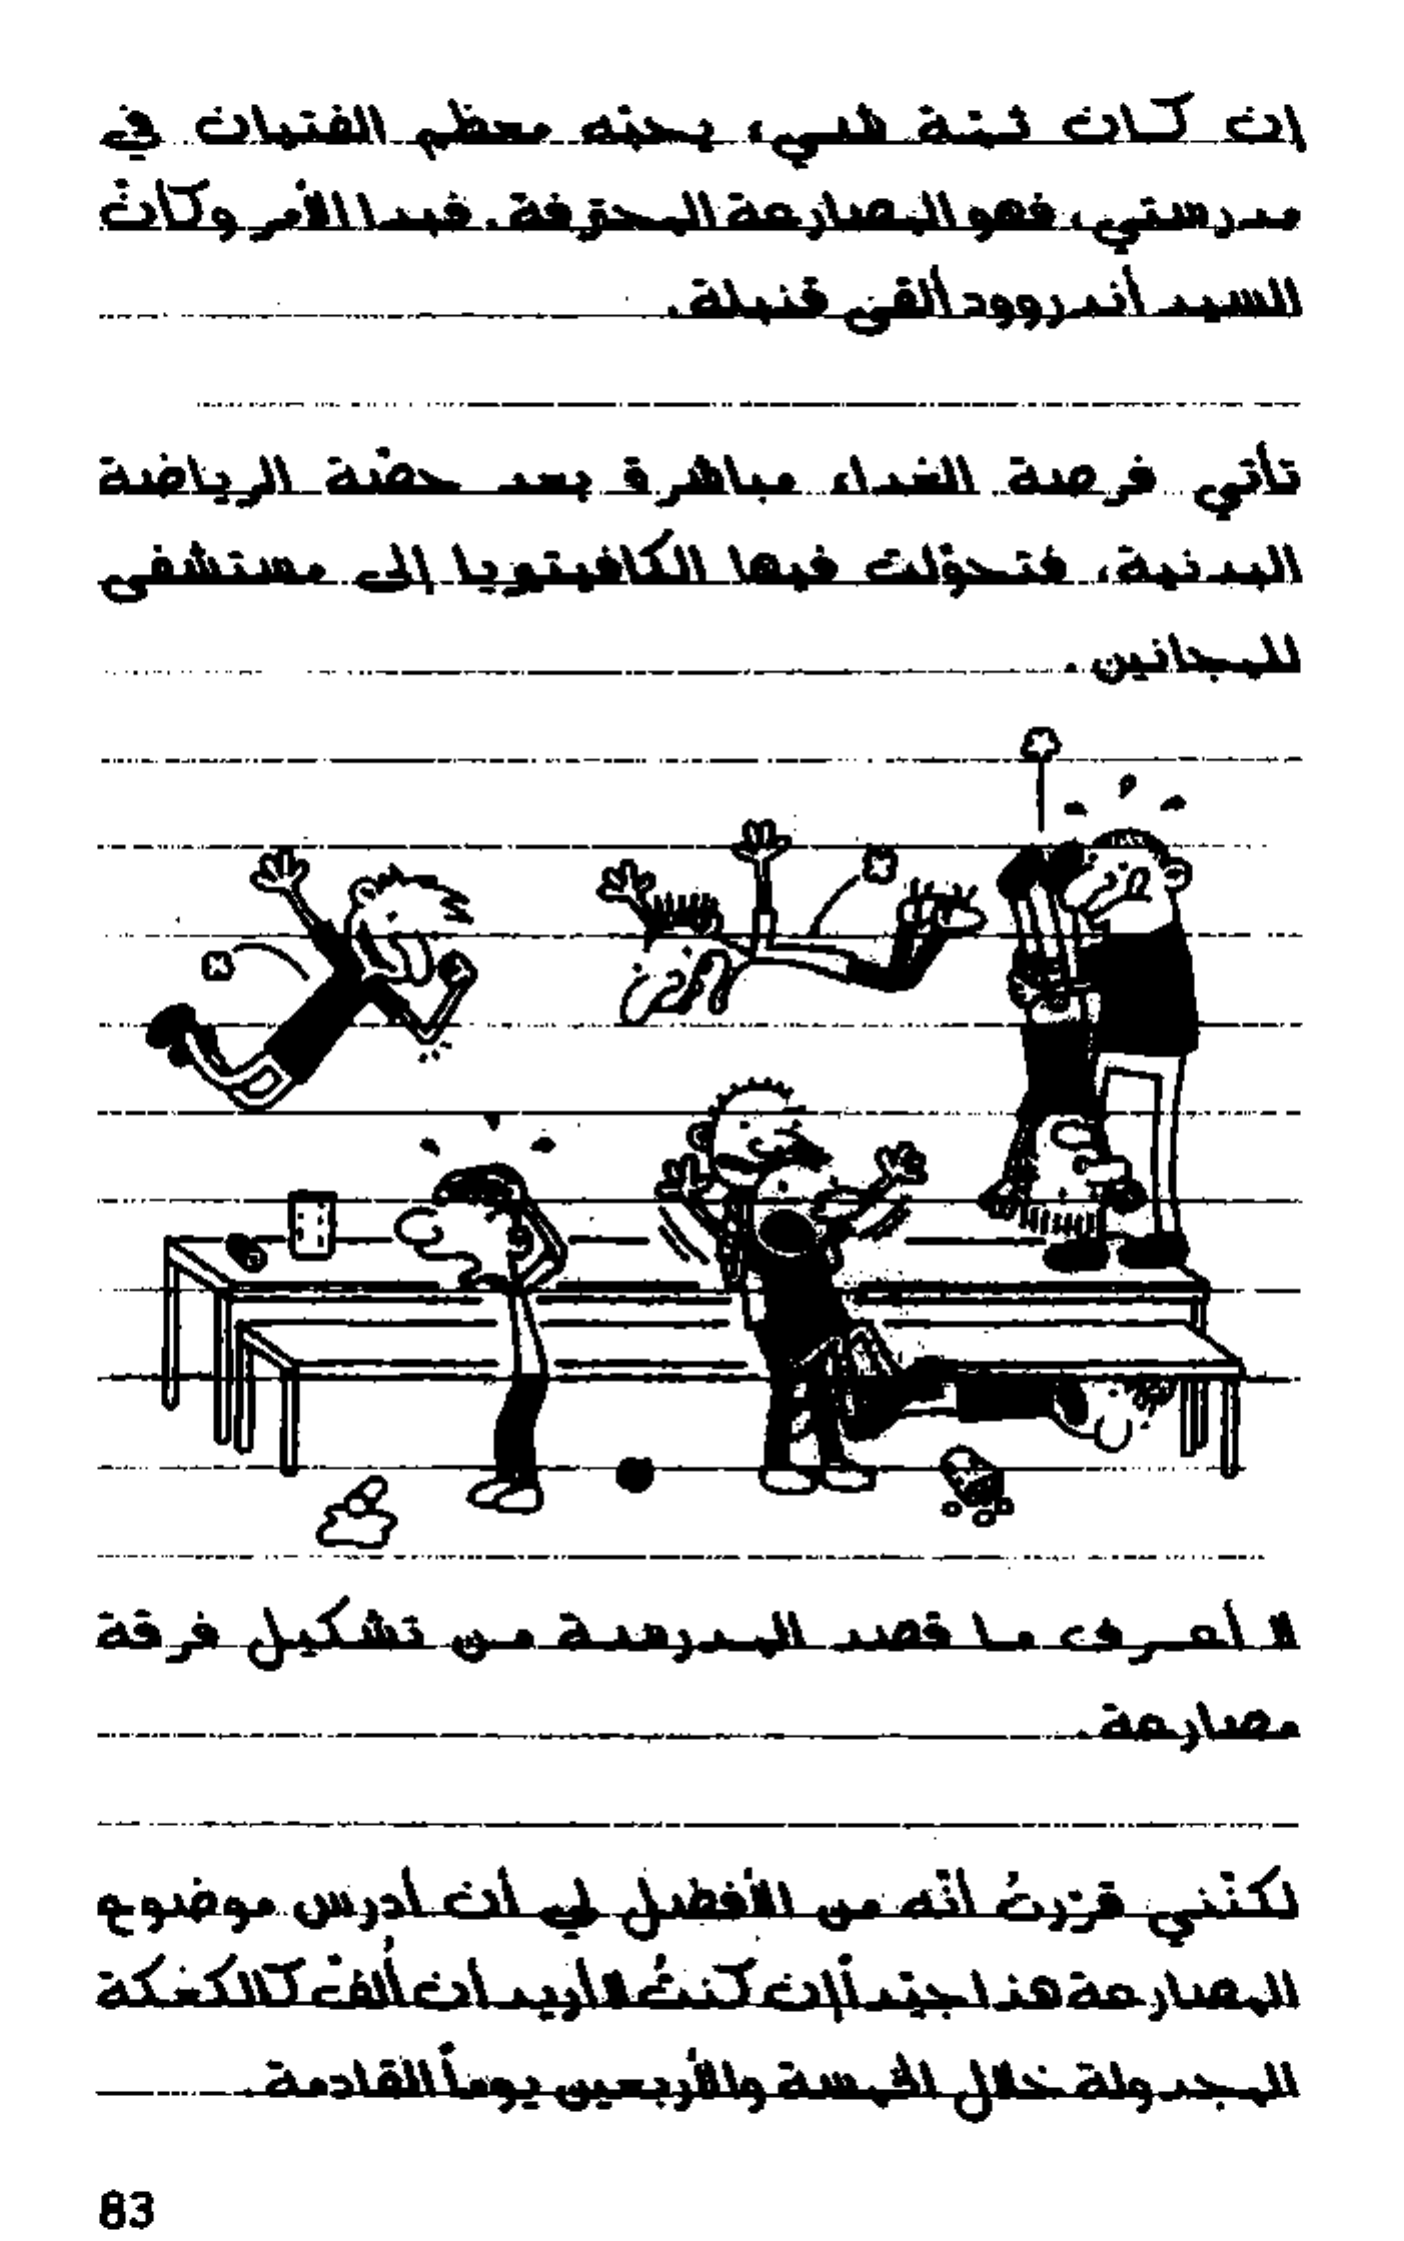 إن كان ثمّة شيء يحبّه معظم الفتيان في
مدرستي، فهو المصارعة المحترفة. فبدا الأمر وكأنّ
السيد أندروود ألقى قنبلة.
تأتي فرصة الغداء مباشرة بعد حصّة الرياضة
البدنية، فتحوّلت فيها الكافيتيريا إلى مستشفى
للمجانين.
لا أعرف ما قصد المدرسة من تشكيل فرقة
مصارعة.
لكنّني قرّرتُ أنّه من الأفضل لي أن أدرس موضوع
المصارعة هذا جيّداً إن كنتُ لا أريد أن أُلفّ كالكعكة
المجدولة خلال الخمسة والأربعين يوماً القادمة.
83